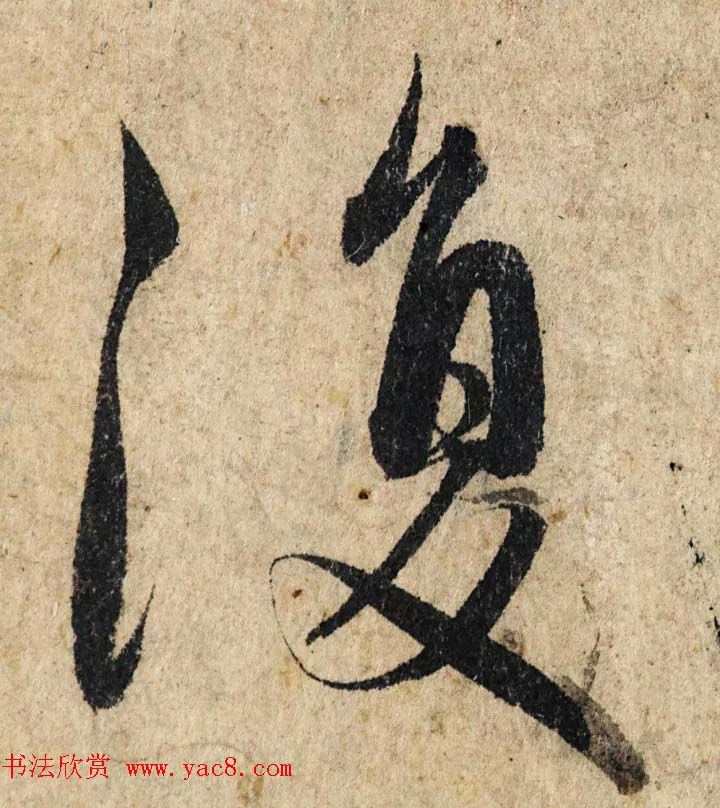 復
书法欣赏 www.yac8.com